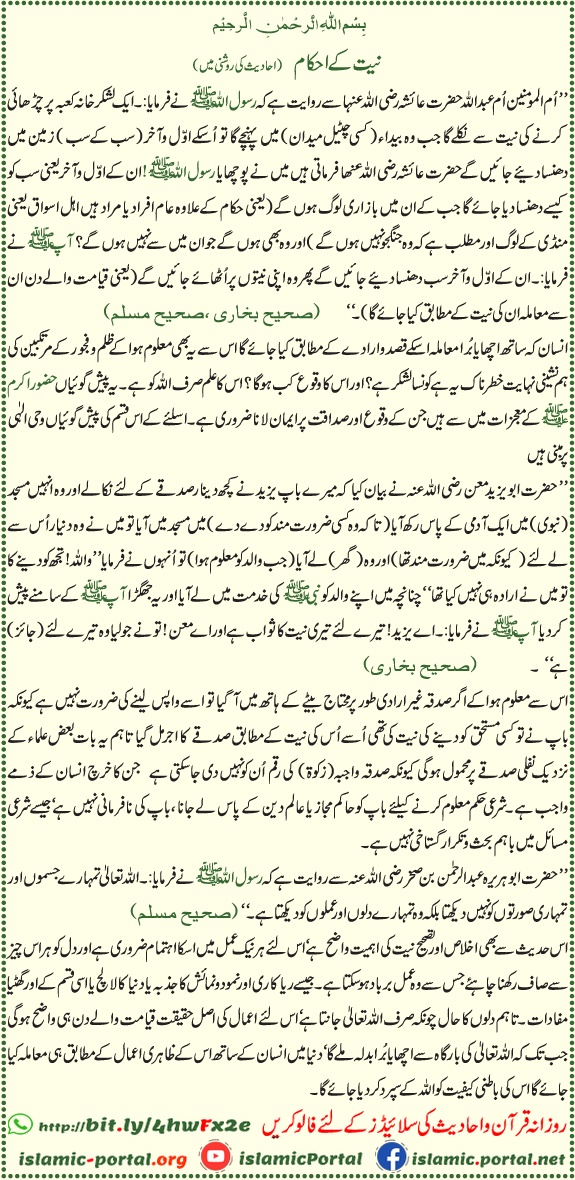 بِسْمِ اللهِ الرَّحْمٰنِ الرَّحِيْمِ
نیت کے احکام (احادیث کی روشنی میں)
’’اُم المومنین اُم عبد اللہ حضرت عائشہ رضی اللہ عنہا سے روایت ہے کہ رسول اللہ ﷺ نے فرمایا:۔ ایک لشکر خانہ کعبہ پر چڑھائی
کرنے کی نیت سے نکلے گا جب وہ بیداء (کسی چٹیل میدان) میں پہنچے گا تو اُسکے اوّل و آخر (سب کے سب) زمین میں
دھنسا دیئے جائیں گے حضرت عائشہ رضی اللہ عنھا فرماتی ہیں میں نے پوچھا یا رسول اللہ ﷺ! ان کے اوّل و آخر یعنی سب کو
کیسے دھنسا دیا جائے گا جب کے ان میں بازاری لوگ ہوں گے (یعنی حکام کے علاوہ عام افراد یا مراد ہیں اہل اسواق یعنی
منڈی کے لوگ اور مطلب ہے کہ وہ جنگجو نہیں ہوں گے) اور وہ بھی ہوں گے جو ان میں سے نہیں ہوں گے؟ آپ ﷺ نے
فرمایا:۔ ان کے اوّل و آخر سب دھنسا دیئے جائیں گے پھر وہ اپنی نیتوں پر اُٹھائے جائیں گے (یعنی قیامت والے دن ان
سے معاملہ ان کی نیت کے مطابق کیا جائے گا)۔‘‘ (صحیح بخاری ،صحیح مسلم)
انسان کہ ساتھ اچھا یا بُرا معاملہ اسکے قصد و ارادے کے مطابق کیا جائے گا اس سے یہ بھی معلوم ہوا کے ظلم و فجور کے مرتکبین کی
ہم نشینی نہایت خطرناک ہے یہ کونسا لشکر ہے؟ اور اس کا وقوع کب ہوگا؟ اس کا علم صرف اللہ کو ہے۔ یہ پیش گوئیاں حضور اکرم
ﷺ کے معجزات میں سے ہیں جن کے وقوع اور صداقت پر ایمان لانا ضروری ہے۔ اسلئے کے اس قسم کی پیش گوئیاں وحی الٰہی
پر مبنی ہیں
’’حضرت ابو یزید معن رضی اللہ عنہ نے بیان کیا کہ میرے باپ یزید نے کچھ دینار صدقے کے لئے نکالے اور وہ انہیں مسجد
(نبوی) میں ایک آدمی کے پاس رکھ آیا (تا کہ وہ کسی ضرورت مند کو دے دے) میں مسجد میں آیا تو میں نے وہ دنیار اُس سے
لے لئے (کیونکہ میں ضرورت مند تھا) اور وہ (گھر) لے آیا (جب والد کو معلوم ہوا) تو اُنہوں نے فرمایا ’’واللہ! تجھ کو دینے کا
تو میں نے ارادہ ہی نہیں کیا تھا‘‘ چنانچہ میں اپنے والد کو نبی ﷺ کی خدمت میں لے آیا اور یہ جھگڑا آپ ﷺ کے سامنے پیش
کر دیا آپ ﷺ نے فرمایا:۔ اے یزید! تیرے لئے تیری نیت کا ثواب ہے اور اے معن! تو نے جو لیا وہ تیرے لئے (جائز)
ہے‘‘ ۔ (صحیح بخاری)
اس سے معلوم ہوا کے اگر صدقہ غیر ارادی طور پر محتاج بیٹے کے ہاتھ میں آ گیا تو اسے واپس لینے کی ضرورت نہیں ہے کیونکہ
باپ نے تو کسی مستحق کو دینے کی نیت کی تھی اُسے اُس کی نیت کے مطابق صدقے کا اجر مل گیا تاہم یہ بات بعض علماء کے
نزدیک نفلی صدقے پر محمول ہوگی کیونکہ صدقہ واجبہ (زکوۃ) کی رقم اُن کو نہیں دی جا سکتی ہے جن کا خرچ انسان کے ذمے
واجب ہے۔ شرعی حکم معلوم کرنے کیلئے باپ کو حاکم مجاز یا عالم دین کے پاس لے جانا، باپ کی نافرمانی نہیں ہے‘ جیسے شرعی
مسائل میں باہم بحث و تکرار گستاخی نہیں ہے۔
’’حضرت ابو ہریرہ عبد الرحمٰن بن صخر رضی اللہ عنہ سے روایت ہے کہ رسول اللہ ﷺ نے فرمایا:۔ اللہ تعالیٰ تمہارے جسموں اور
تمہاری صورتوں کو نہیں دیکھتا بلکہ وہ تمہارے دلوں اور عملوں کو دیکھتا ہے۔‘‘ (صحیح مسلم)
اس حدیث سے بھی اخلاص اور تصحیح نیت کی اہمیت واضح ہے‘ اس لئے ہر نیک عمل میں اسکا اہتمام ضروری ہے اور دل کو ہر اس چیز
سے صاف رکھنا چاہئے جس سے وہ عمل برباد ہو سکتا ہے۔ جیسے ریا کاری اور نمود و نمائش کا جذبہ یا دنیا کا لالچ یا اسی قسم کے اور گھٹیا
مفادات۔ تاہم دلوں کا حال چونکہ صرف اللہ تعالیٰ جانتا ہے‘ اس لئے اعمال کی اصل حقیقت قیامت والے دن ہی واضح ہوگی
جب تک کہ اللہ تعالیٰ کی بارگاہ سے اچھا یا بُرا بدلہ ملے گا‘ دنیا میں انسان کے ساتھ اس کے ظاہری اعمال کے مطابق ہی معاملہ کیا
جائے گا اس کی باطنی کیفیت کو اللہ کے سپرد کر دیا جائے گا۔
روزانہ قرآن و احادیث کی سلائیڈز کے لئے فالو کریں http://bit.ly/4hwFx2e
islamic-portal.org islamicPortal islamic.portal.net